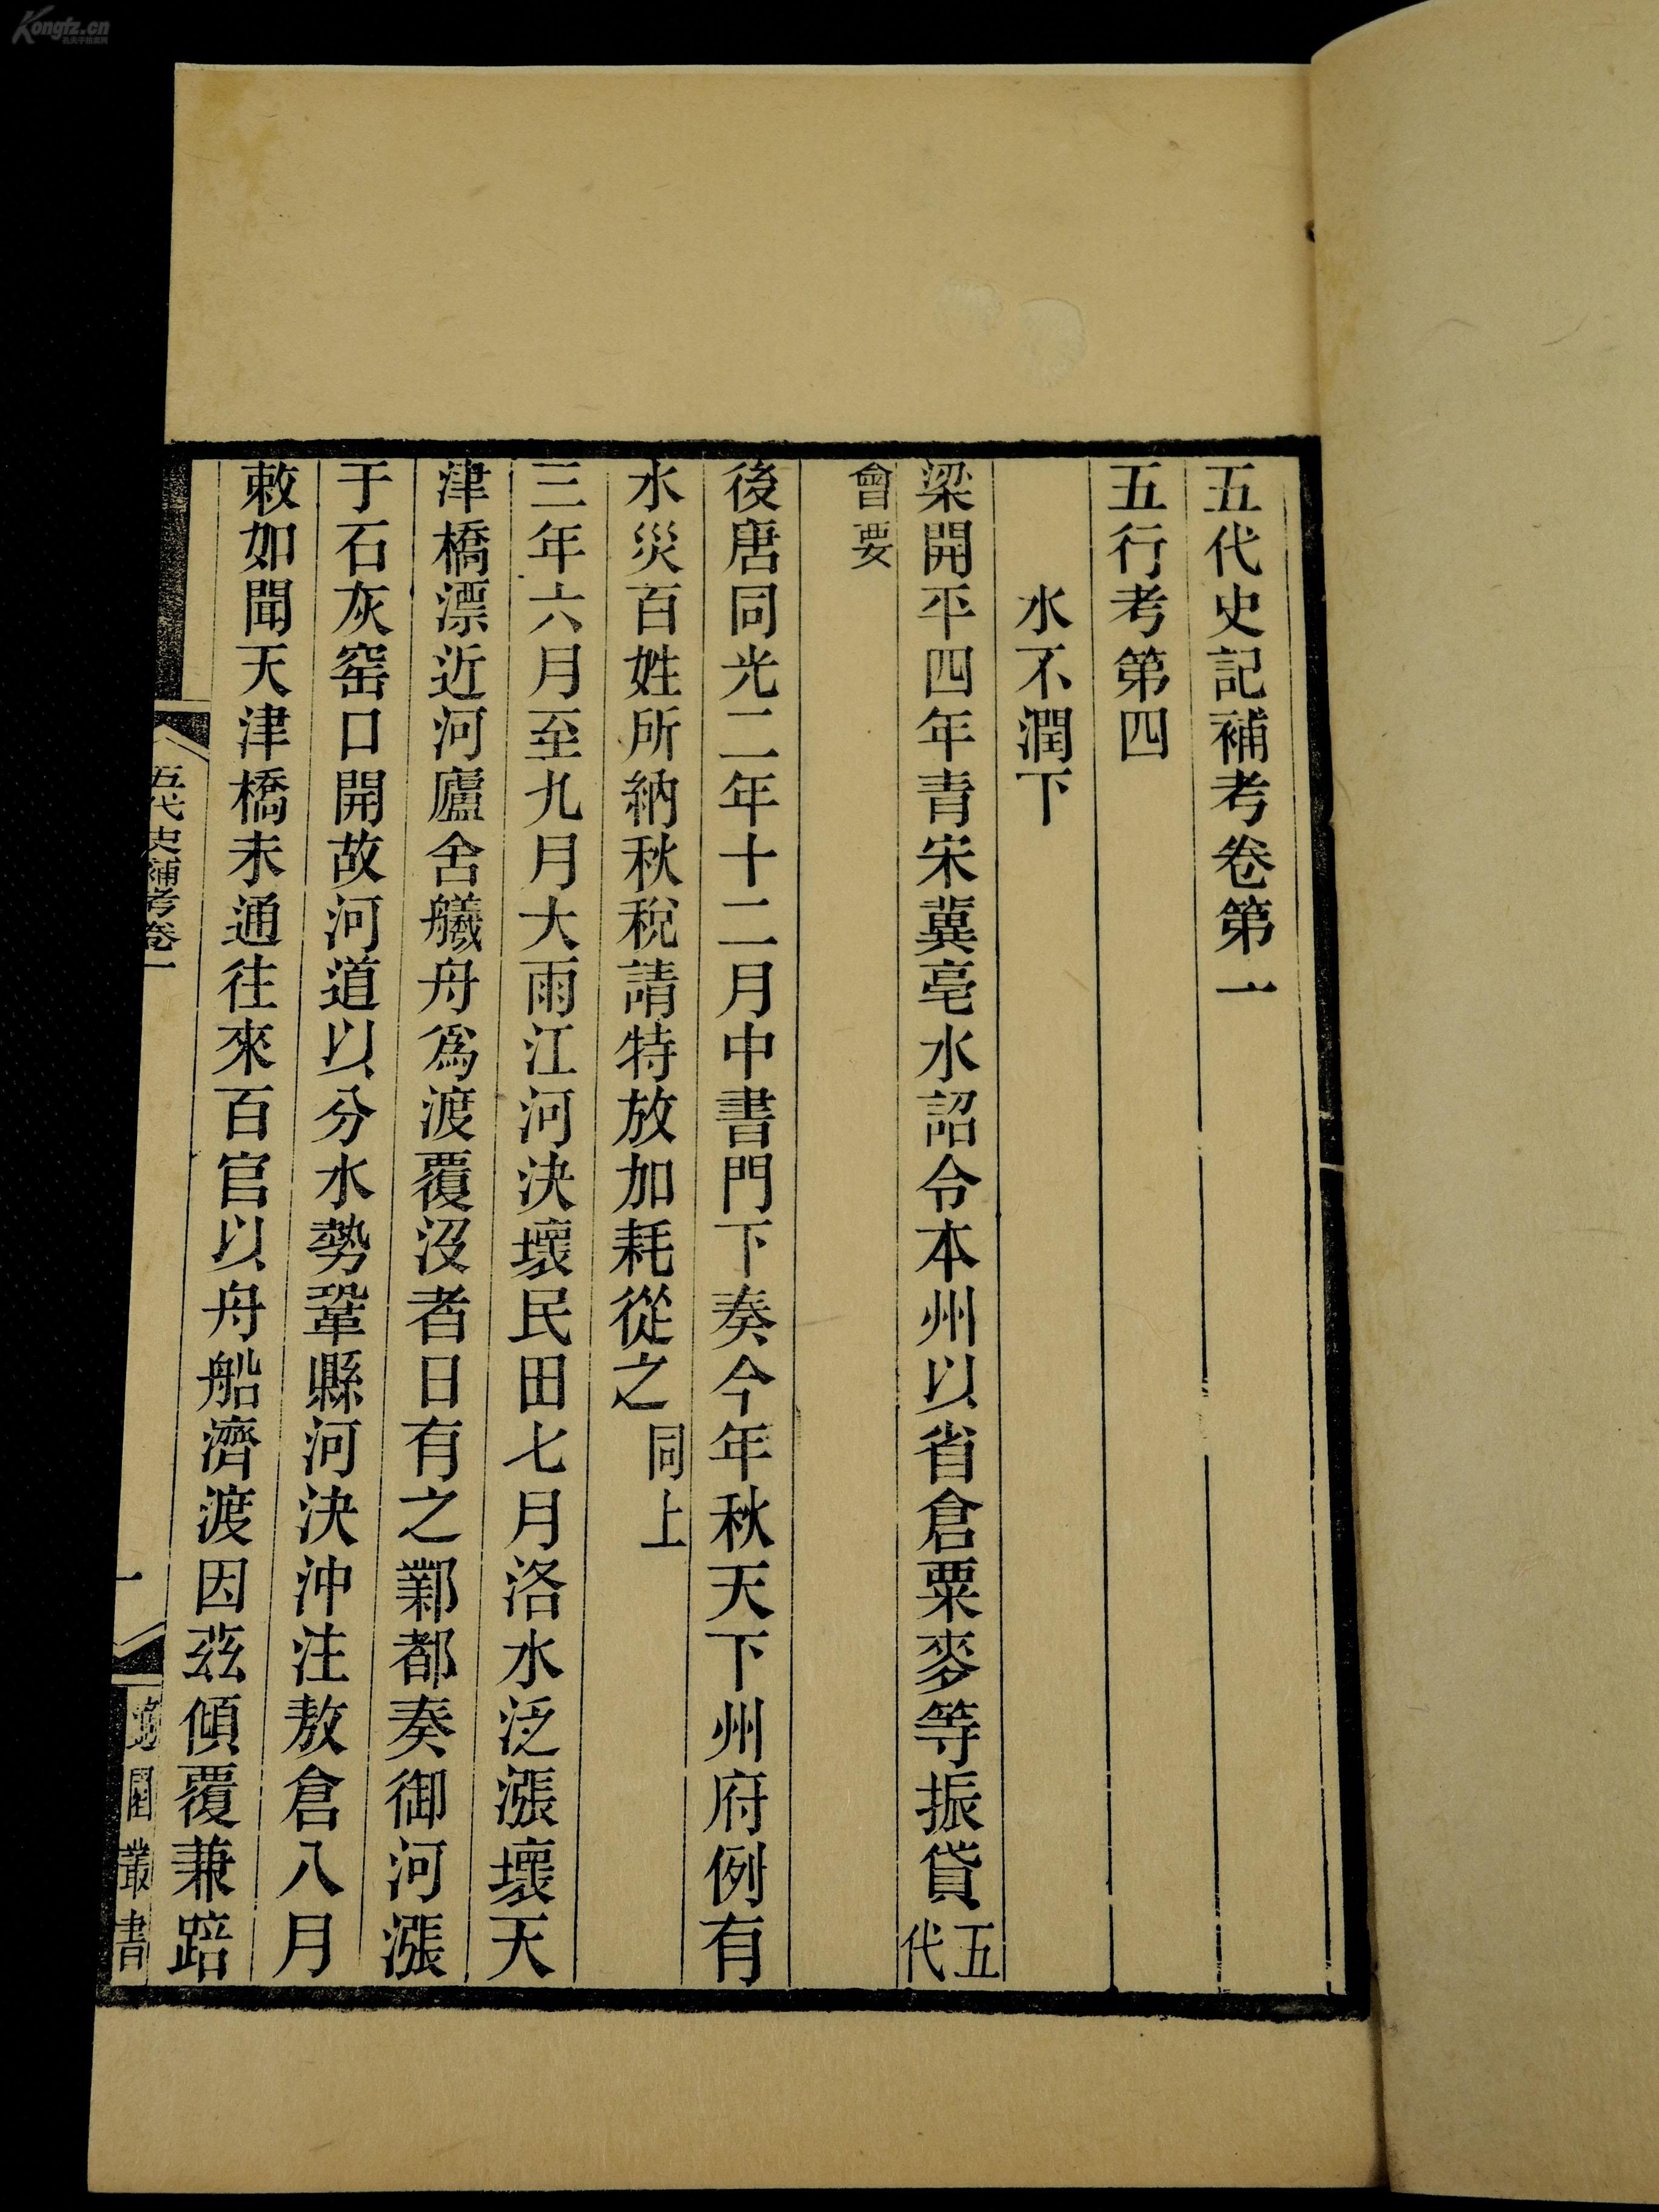 五代史記補考卷第一
五行考第四
水不潤下
梁開平四年青宋冀亳水詔令本州以省倉粟麥等振貸五代
會要
後唐同光二年十二月中書門下奏今年秋天下州府例有
水災百姓所納秋稅請特放加耗從之同上
三年六月至九月大雨江河決壞民田七月洛水泛漲壞天
津橋漂近河廬舍艤舟為渡覆沒者日有之鄴都奏御河漲
于石灰窑口開故河道以分水勢鞏縣河決沖注敖倉八月
敕如聞天津橋未通往來百官以舟船濟渡因茲傾覆兼踣
五代史補考卷一
一
園叢書
Kongfz.cn
孔夫子舊書網